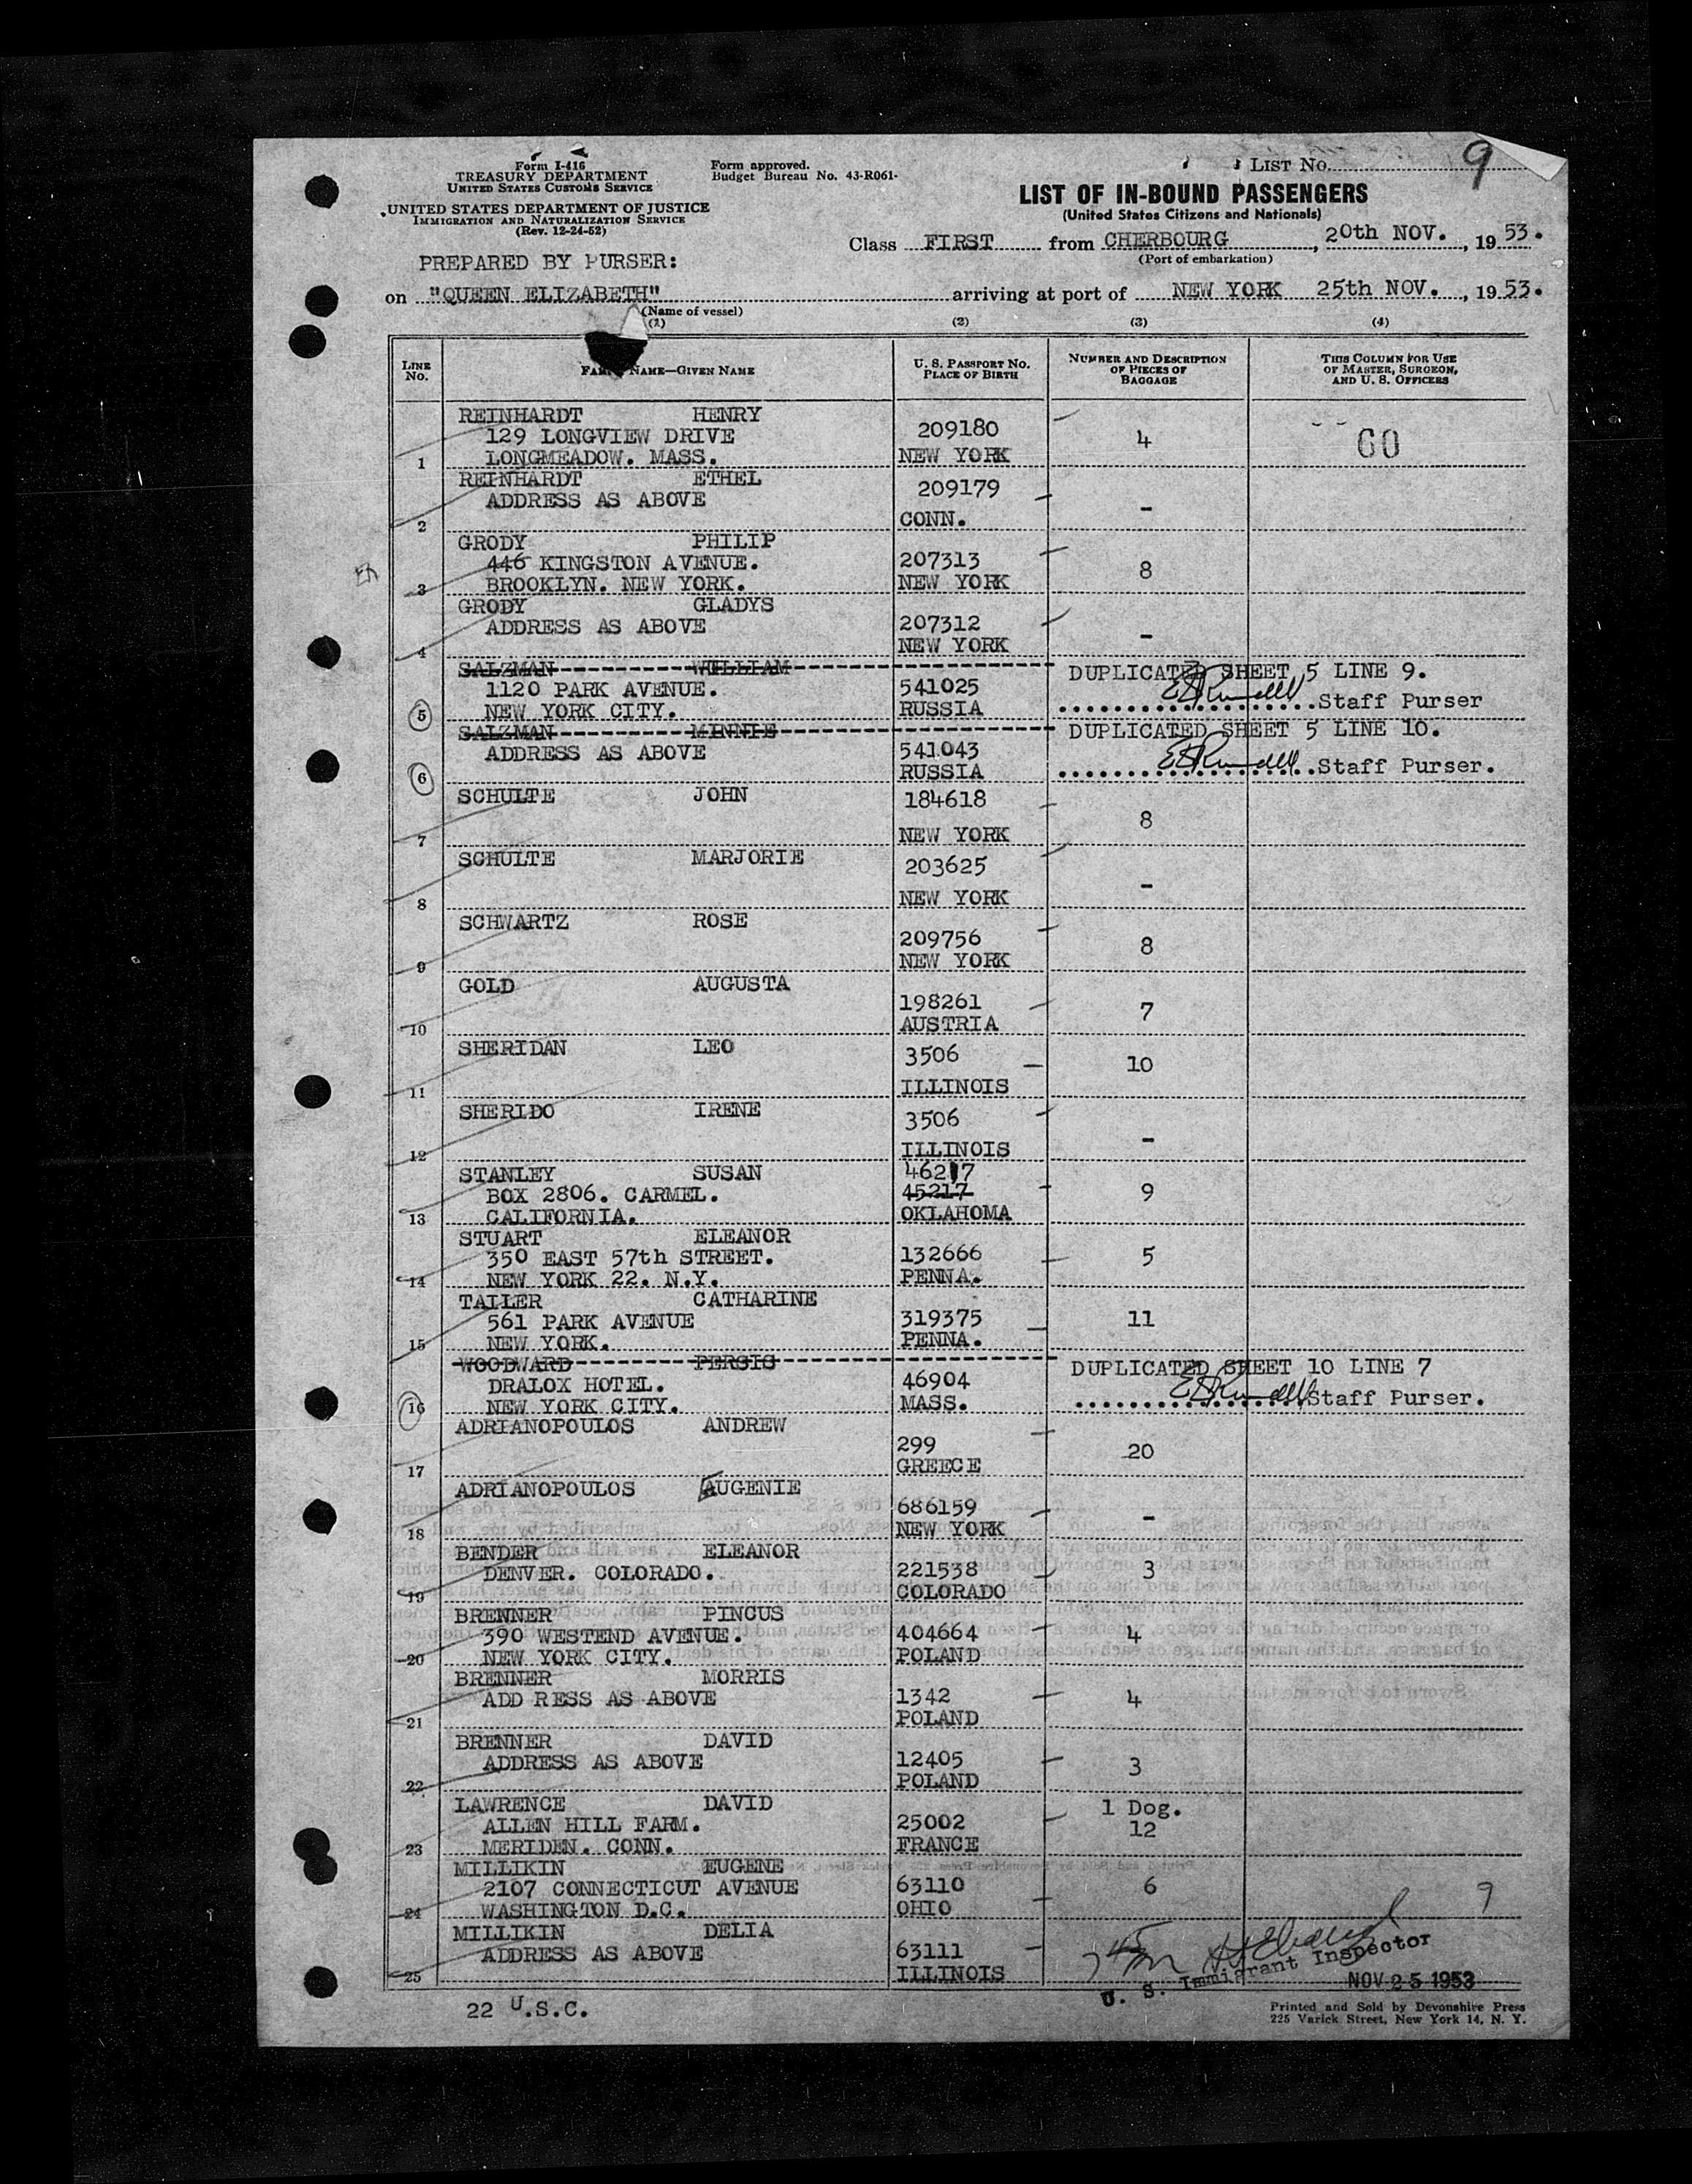 Form I-416
TREASURY DEPARTMENT
UNITED STATES CUSTOMS SERVICE
UNITED STATES DEPARTMENT OF JUSTICE
IMMIGRATION AND NATURALIZATION SERVICE
(Rev. 12-24-52)
Form approved.
Budget Bureau No. 43-R061-
LIST No. 9
LIST OF IN-BOUND PASSENGERS
(United States Citizens and Nationals)
Class FIRST from CHERBOURG, 20th NOV., 1953.
(Port of embarkation)
PREPARED BY PURSER:
on "QUEEN ELIZABETH" arriving at port of NEW YORK 25th NOV., 1953.
(Name of vessel)
(1) (2) (3) (4)
LINE No.
NAME—GIVEN NAME
U. S. PASSPORT No.
PLACE OF BIRTH
NUMBER AND DESCRIPTION
OF PIECES OF
BAGGAGE
THIS COLUMN FOR USE
OF MASTER, SURGEON,
AND U. S. OFFICERS
REINHARDT HENRY
129 LONGVIEW DRIVE 209180 4 60
1 LONGMEADOW. MASS. NEW YORK
REINHARDT ETHEL
ADDRESS AS ABOVE 209179 -
2 CONN.
GRODY PHILIP
446 KINGSTON AVENUE. 207313 8
3 BROOKLYN. NEW YORK. NEW YORK
GRODY GLADYS
ADDRESS AS ABOVE 207312 -
4 NEW YORK
SALZMAN WILLIAM DUPLICATED SHEET 5 LINE 9.
1120 PARK AVENUE. 541025
5 NEW YORK CITY. RUSSIA Staff Purser
SALZMAN MINNIE DUPLICATED SHEET 5 LINE 10.
ADDRESS AS ABOVE 541043
6 RUSSIA Staff Purser.
SCHULTE JOHN 184618 8
7 NEW YORK
SCHULTE MARJORIE 203625 -
8 NEW YORK
SCHWARTZ ROSE
209756 8
9 NEW YORK
GOLD AUGUSTA
198261 7
10 AUSTRIA
SHERIDAN LEO 3506 10
11 ILLINOIS
SHERIDO IRENE 3506 -
12 ILLINOIS
STANLEY SUSAN 46217
BOX 2806. CARMEL. 45217 9
13 CALIFORNIA. OKLAHOMA
STUART ELEANOR
350 EAST 57th STREET. 132666 5
14 NEW YORK 22. N.Y. PENNA.
TAILER CATHARINE
561 PARK AVENUE 319375 11
15 NEW YORK. PENNA.
WOODWARD PERSIS DUPLICATED SHEET 10 LINE 7
DRALOX HOTEL. 46904
16 NEW YORK CITY. MASS. Staff Purser.
ADRIANOPOULOS ANDREW
299 20
17 GREECE
ADRIANOPOULOS AUGENIE
686159 -
18 NEW YORK
BENDER ELEANOR
DENVER. COLORADO. 221538 3
19 COLORADO
BRENNER PINCUS
390 WESTEND AVENUE. 404664 4
20 NEW YORK CITY. POLAND
BRENNER MORRIS
ADD RESS AS ABOVE 1342 4
21 POLAND
BRENNER DAVID
ADDRESS AS ABOVE 12405 3
22 POLAND
LAWRENCE DAVID 1 Dog.
ALLEN HILL FARM. 25002 12
23 MERIDEN. CONN. FRANCE
MILLIKIN EUGENE
2107 CONNECTICUT AVENUE 63110 6
24 WASHINGTON D.C. OHIO 9
MILLIKIN DELIA
ADDRESS AS ABOVE 63111
25 ILLINOIS
U. S. Immigrant Inspector
NOV 25 1953
22 U.S.C.
Printed and Sold by Devonshire Press
225 Varick Street, New York 14, N. Y.